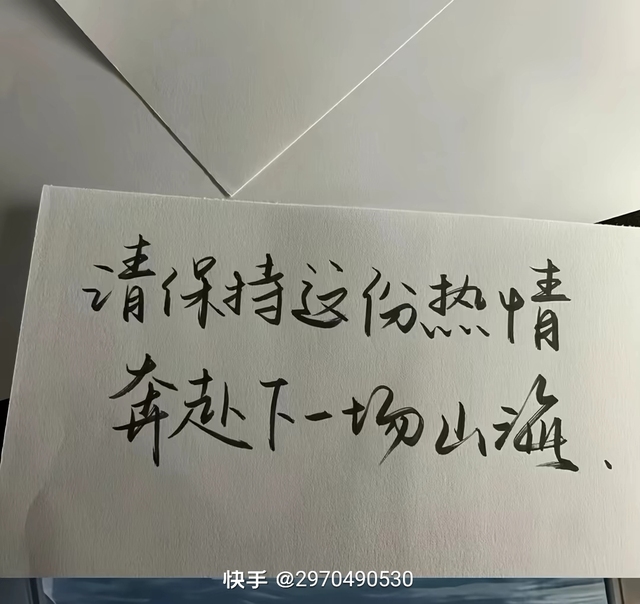 请保持这份热情
奔赴下一场山海、
快手 @2970490530